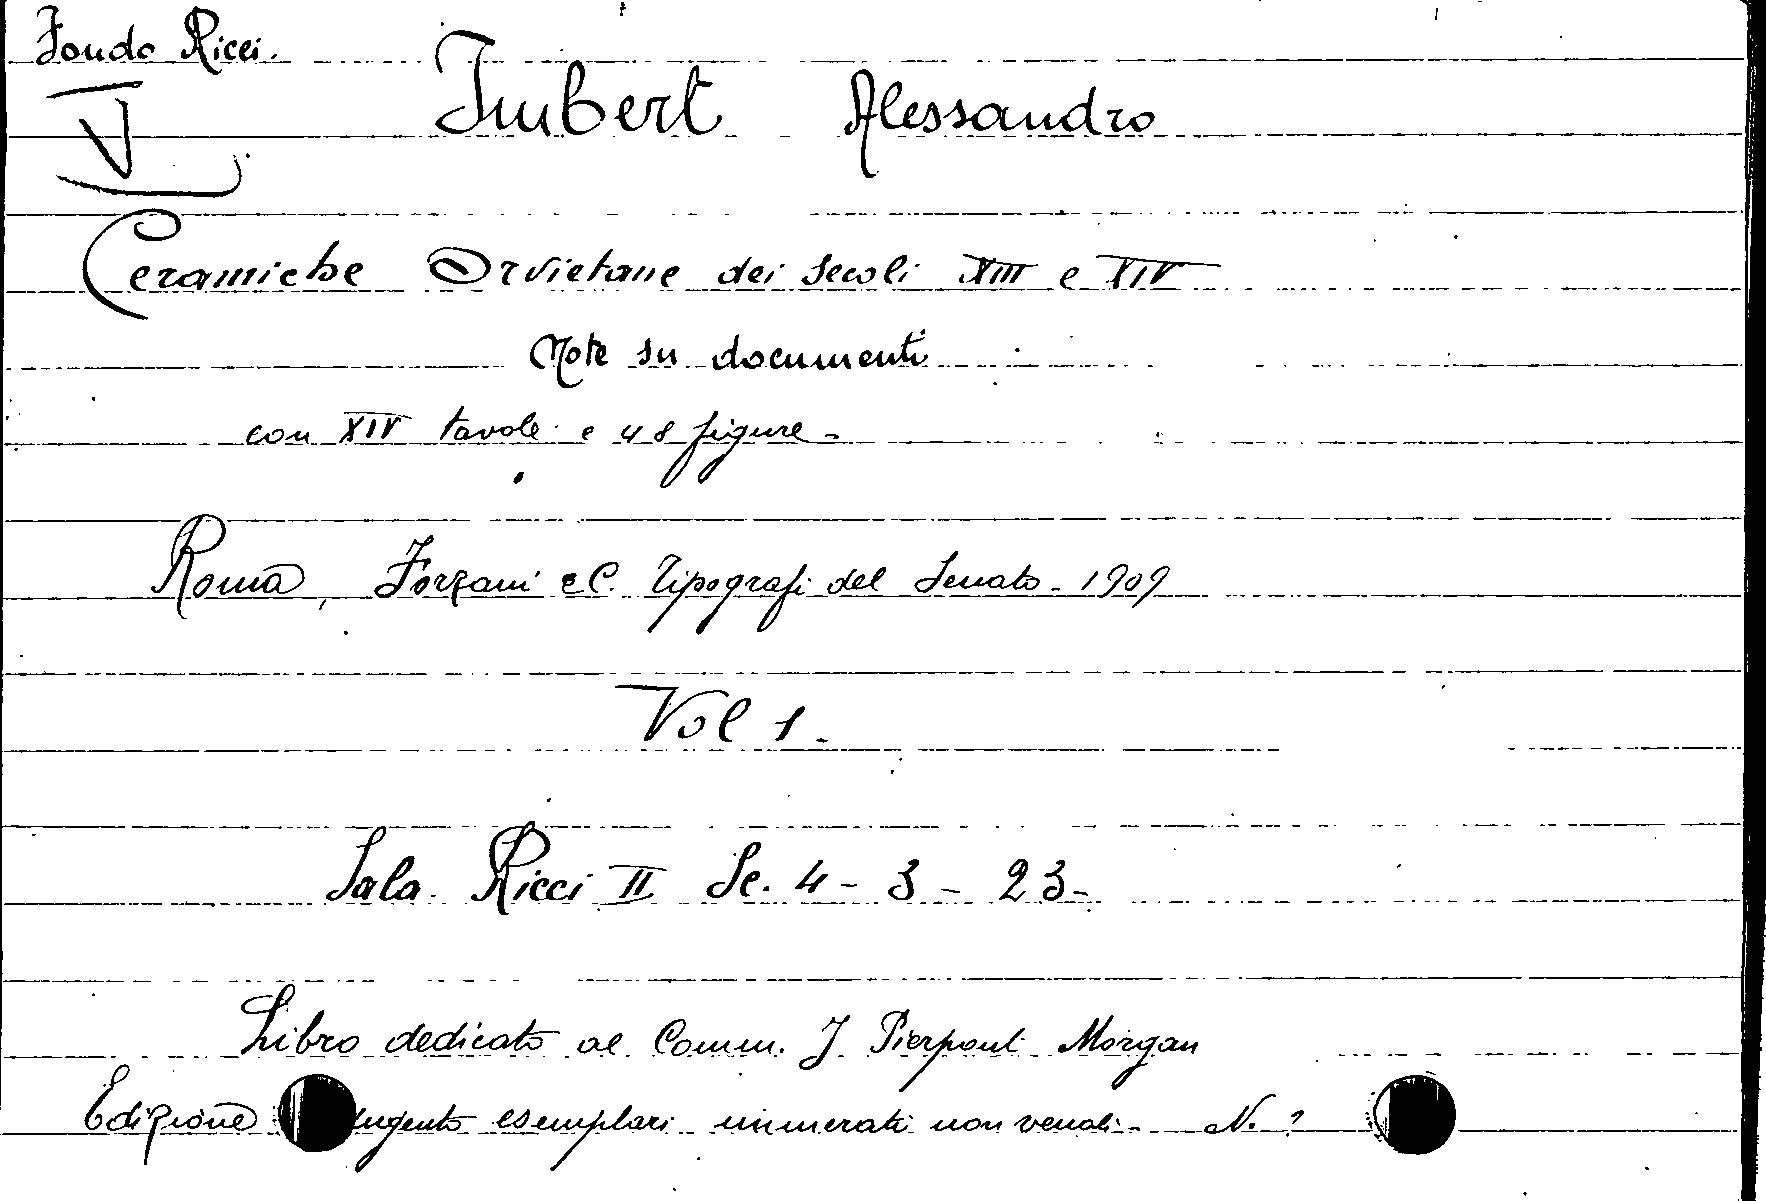 Fondo Ricci.
Imbert Alessandro
V
Ceramiche Orvietane dei secoli XIII e XIV
Note su documenti
con XIV tavole e 48 figure -
Roma, Forzani e C. Tipografi del Senato - 1909
Vol 1.
Sala Ricci II Sc. 4 - 3 - 23 -
Libro dedicato al Comm. J Pierpont Morgan
Edizione esemplari numerati non venali - N. ?